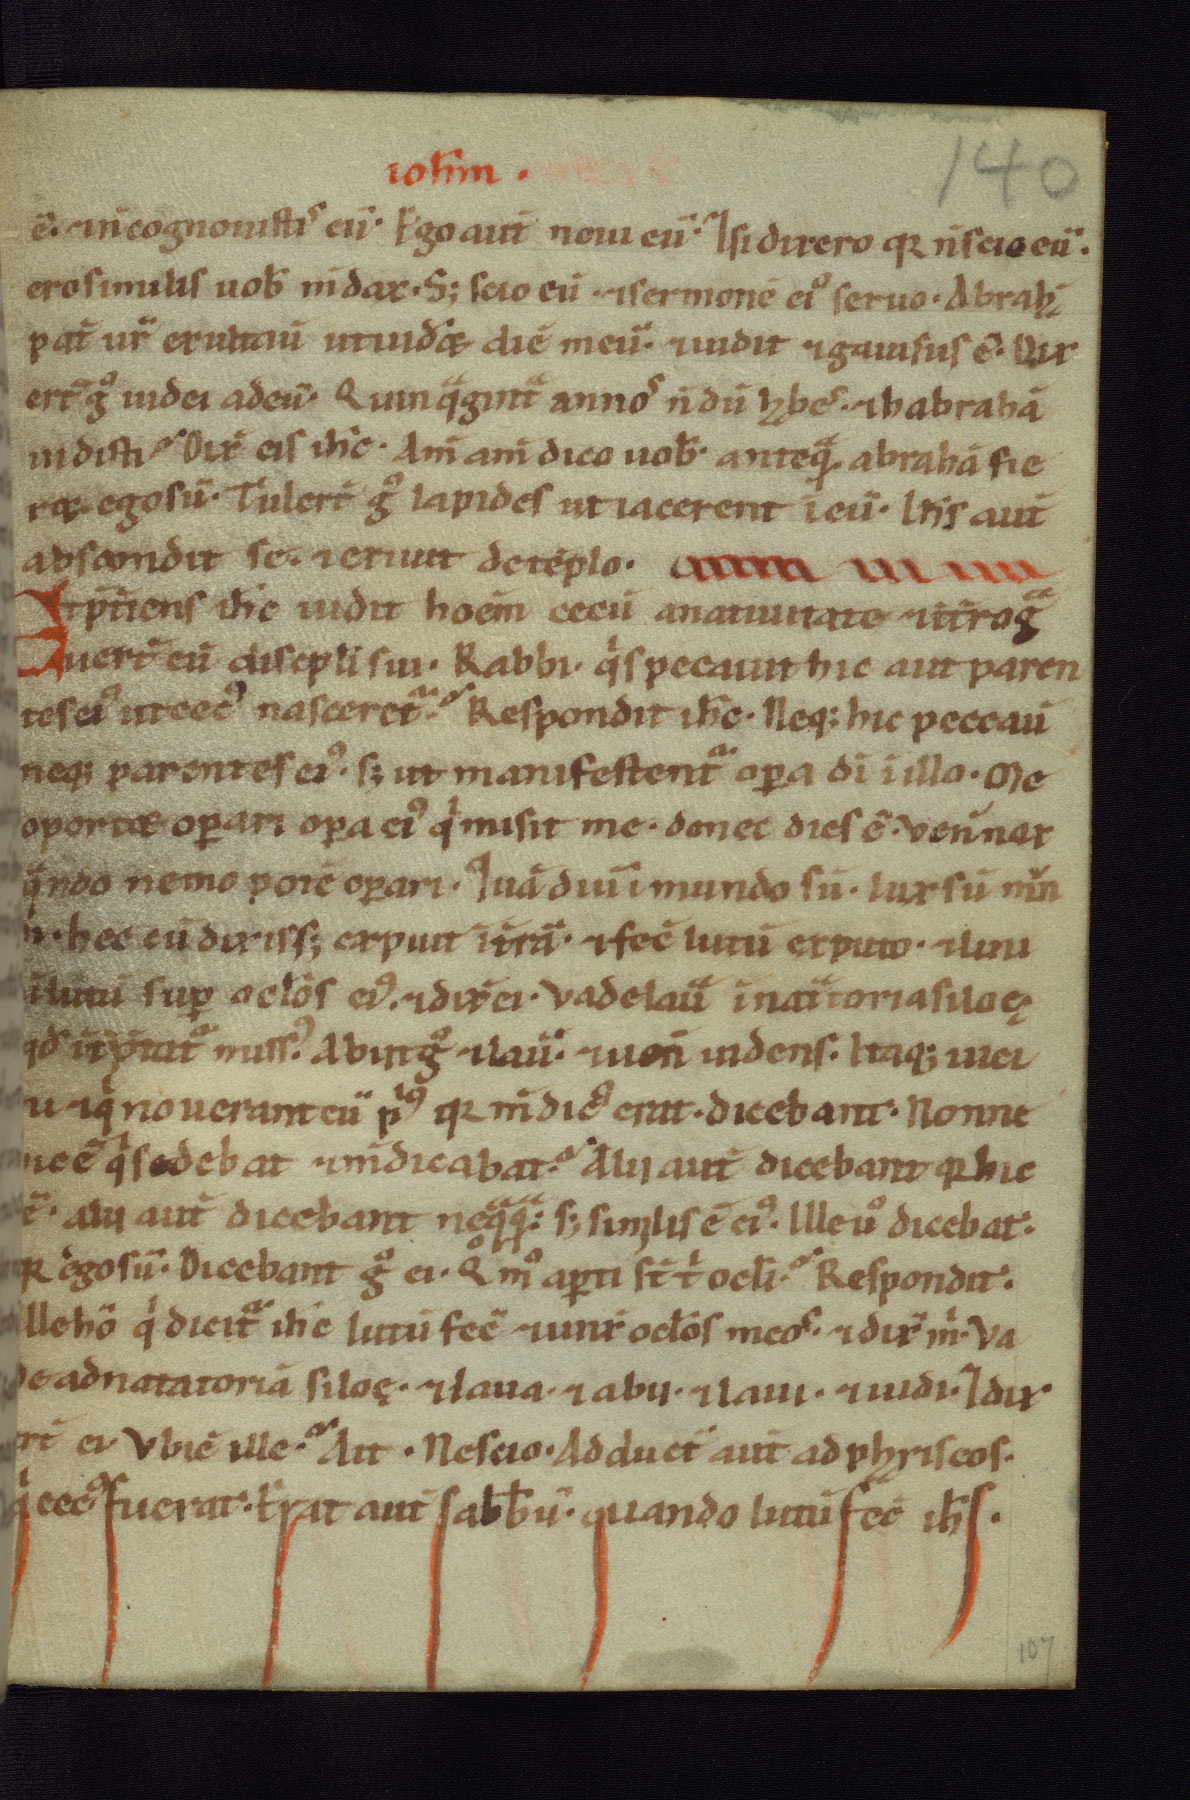 140
ioħm .
ē. ⁊ n̄ cognouistis eū. Ego aut̄ noui eū. ⁊ si dixero qꝛ n̄ scio eū.
ero similis uob̄ m̄dax. S; scio eū. ⁊ sermonē eiꝰ seruo. Abrahā
pat̄ ur̄ exultau̅ ut uidet diē meū. ⁊ uidit ⁊ gauisus ē. Dix
er̄t g̊ iudei ad eū. Quinqᵃgintᵃ annos n̄ dū hʒbes. ⁊ habrahā
uidisti. Dix̄ eis ih̄c. Am̄ am̄ dico uob̄. anteqᵃ abrahā fie
ret. ego sū. Tuler̄t g̊ lapides ut iacerent ī eū. Ih̄s aut̄
abscondit se. ⁊ exiuit de tēplo.
Et p̄t̄iens ih̄c uidit hoēm cecū a natiuitate ⁊ ītrogᵃ
uer̄t eū discip̄li sui. Rabbi. qͥs peccauit hic aut paren
tes eiꝰ ut cecꝰ nasceret̄. Respondit ih̄c. Neq; hic peccau̅
neq; parentes eiꝰ. s; ut manifestent̄ oꝑa dī ī illo. Me
oportet oꝑari oꝑa eiꝰ qͥ misit me. donec dies ē. Ven̄ nox
qᵃndo nemo potē oꝑari. Quādiu ī mundo sū. lux sū mūn
ı. hec cū dixiss; expuit ī t̄rā. ⁊ fec̄ lutū ex puto. ⁊ liui
ī lutū suꝑ ocl̄os eiꝰ. ⁊ dix̄ ei. Vade lauᵃ ī natᵃtoria siloę
qd̄ īt̄p̄tat̄ missꝰ. Abiit g̊ ⁊ lau̅. ⁊ uen̄ uidens. Itaq; uici
ni ⁊ qͥ nouerant eū pͥꝰ qꝛ m̄dicꝰ erat. dicebant. Nonne
hic ē qͥ sedebat ⁊ m̄dicabat. Alij aut̄ dicebant qꝛ hic
ē. alij aut̄ dicebant neqᵃqᵃ. s; similis ē eiꝰ. Ille u̅ dicebat.
qꝛ ego sū. Dicebant g̊ ei. Qͦmͦ aꝑti st̄ tͥ ocl̄i. Respondit.
Ille hō qͥ dicit̄ ih̄c lutū fec̄ ⁊ unx̄ ocl̄os meos. ⁊ dix̄ mͥ. Va
de ad natatoriā siloę. ⁊ laua. ⁊ abij. ⁊ laui. ⁊ uidi. ⁊ dix
er̄t ei Vbi ē ille. Ait. Nescio. Adduct̄ aut̄ ad phʒriseos.
qͥ cecꝰ fuerat. Erat aut̄ sabb̄ū. quando lutū fec̄ ih̄s.
107